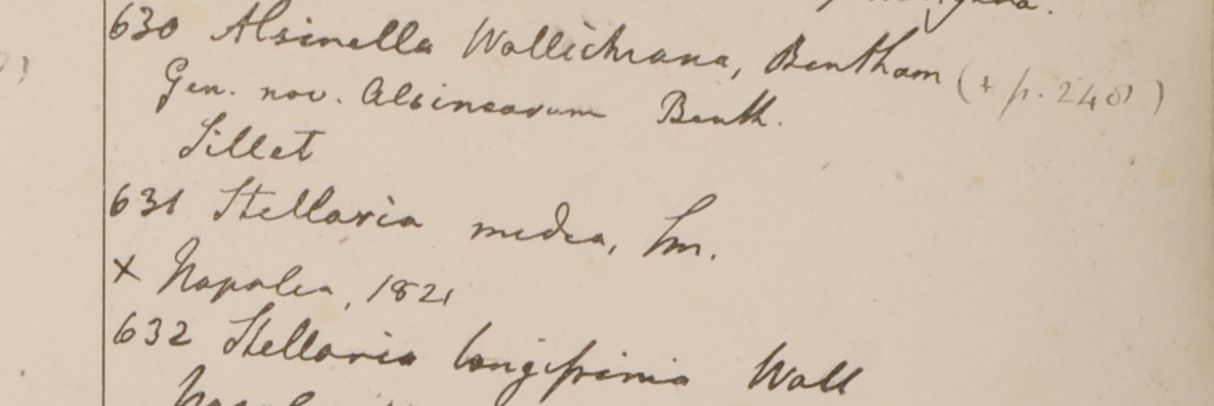 630 Alsinella Wallichiana, Bentham (+ p. 248)
Gen. nov. Alsinearum Benth.
Sillet
631 Stellaria media, Sm.
+ Napalia, 1821
632 Stellaria longissima Wall